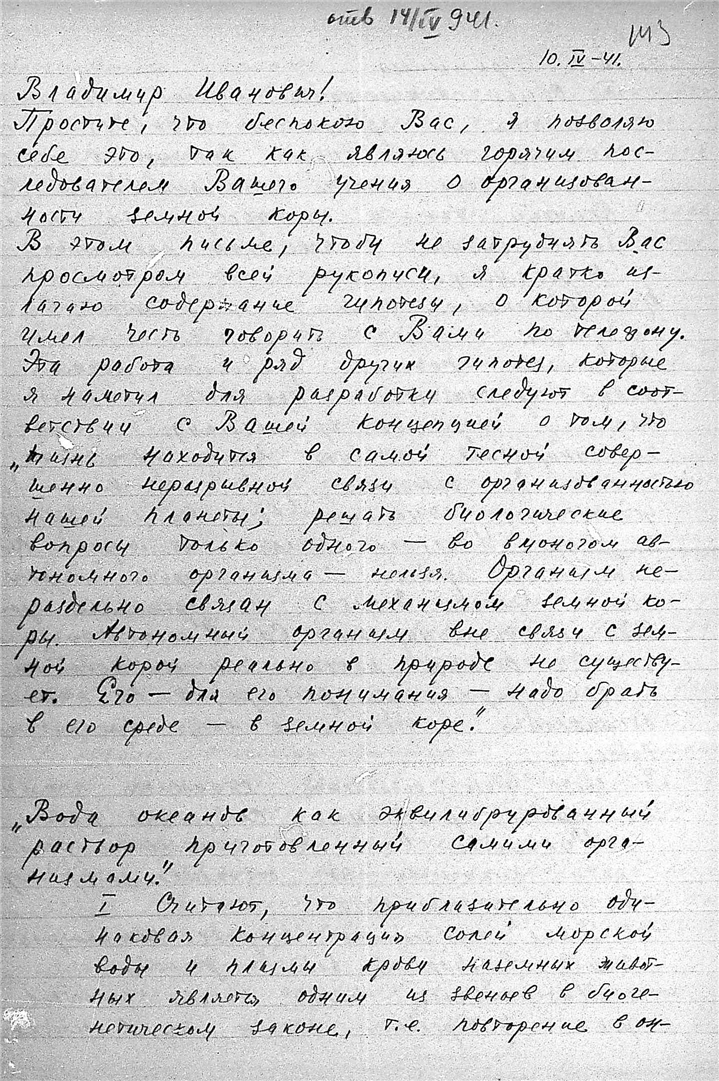 отв 14/IV 941.
143
10. IV-41.
Владимир Иванович!
Простите, что беспокою Вас, я позволяю
себе это, так как являюсь горячим пос-
ледователем Вашего учения о организован-
ности земной коры.
В этом письме, чтобы не затруднять Вас
просмотром всей рукописи, я кратко из-
лагаю содержание гипотезы, о которой
имел честь говорить с Вами по телефону.
Эта работа и ряд других гипотез, которые
я наметил для разработки следуют в соот-
ветствии с Вашей концепцией о том, что
„жизнь находится в самой тесной совер-
шенно неразрывной связи с организованностью
нашей планеты; решать биологические
вопросы только одного — во многом ав-
тономного организма — нельзя. Организм не-
раздельно связан с механизмом земной ко-
ры. Автономный организм вне связи с зем-
ной корой реально в природе не существу-
ет. Его — для его понимания — надо брать
в его среде — в земной коре."
„Вода океанов как эквилибрированный
раствор приготовленный самими орга-
низмами."
I Считают, что приблизительно оди-
наковая концентрация солей морской
воды и плазмы крови наземных живот-
ных является одним из звеньев в биоге-
нетическом законе, т.е. повторение в он-